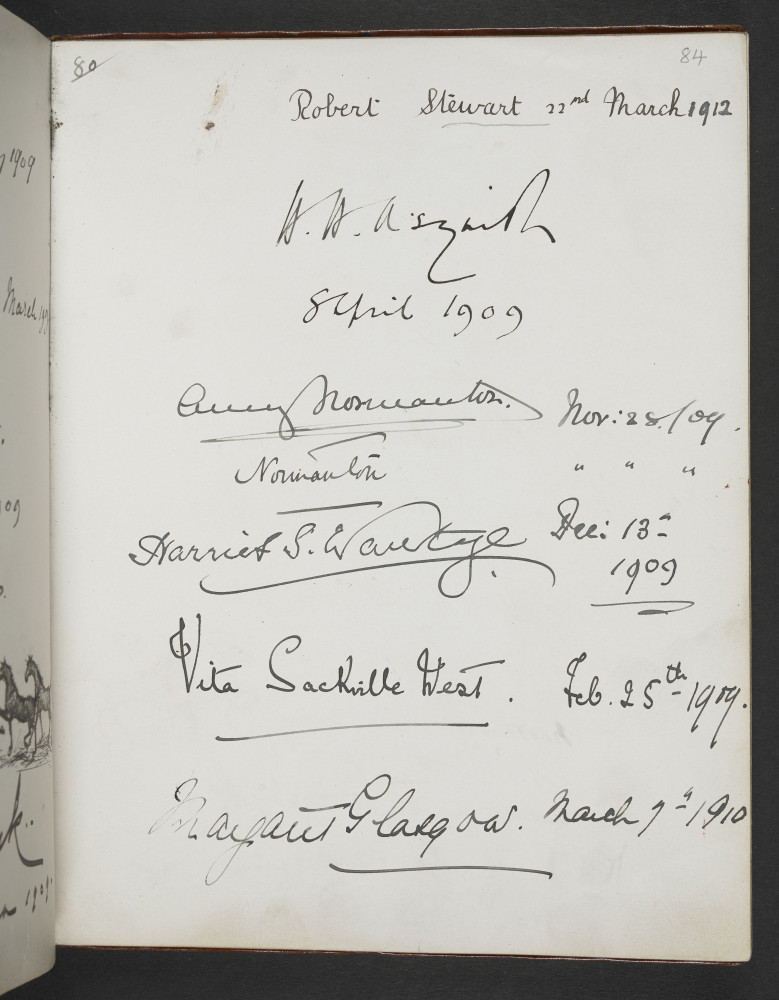 80
84
Robert Stewart 22nd March 1912
H. H. Asquith
8 April 1909
Amy Normanton. Nov: 28./09.
Normanton " " "
Harriet S. Dec: 13th
1909
Vita Sackville West. Feb. 25th 1909.
Margaret Glasgow. March 7th 1910
1909
March
09